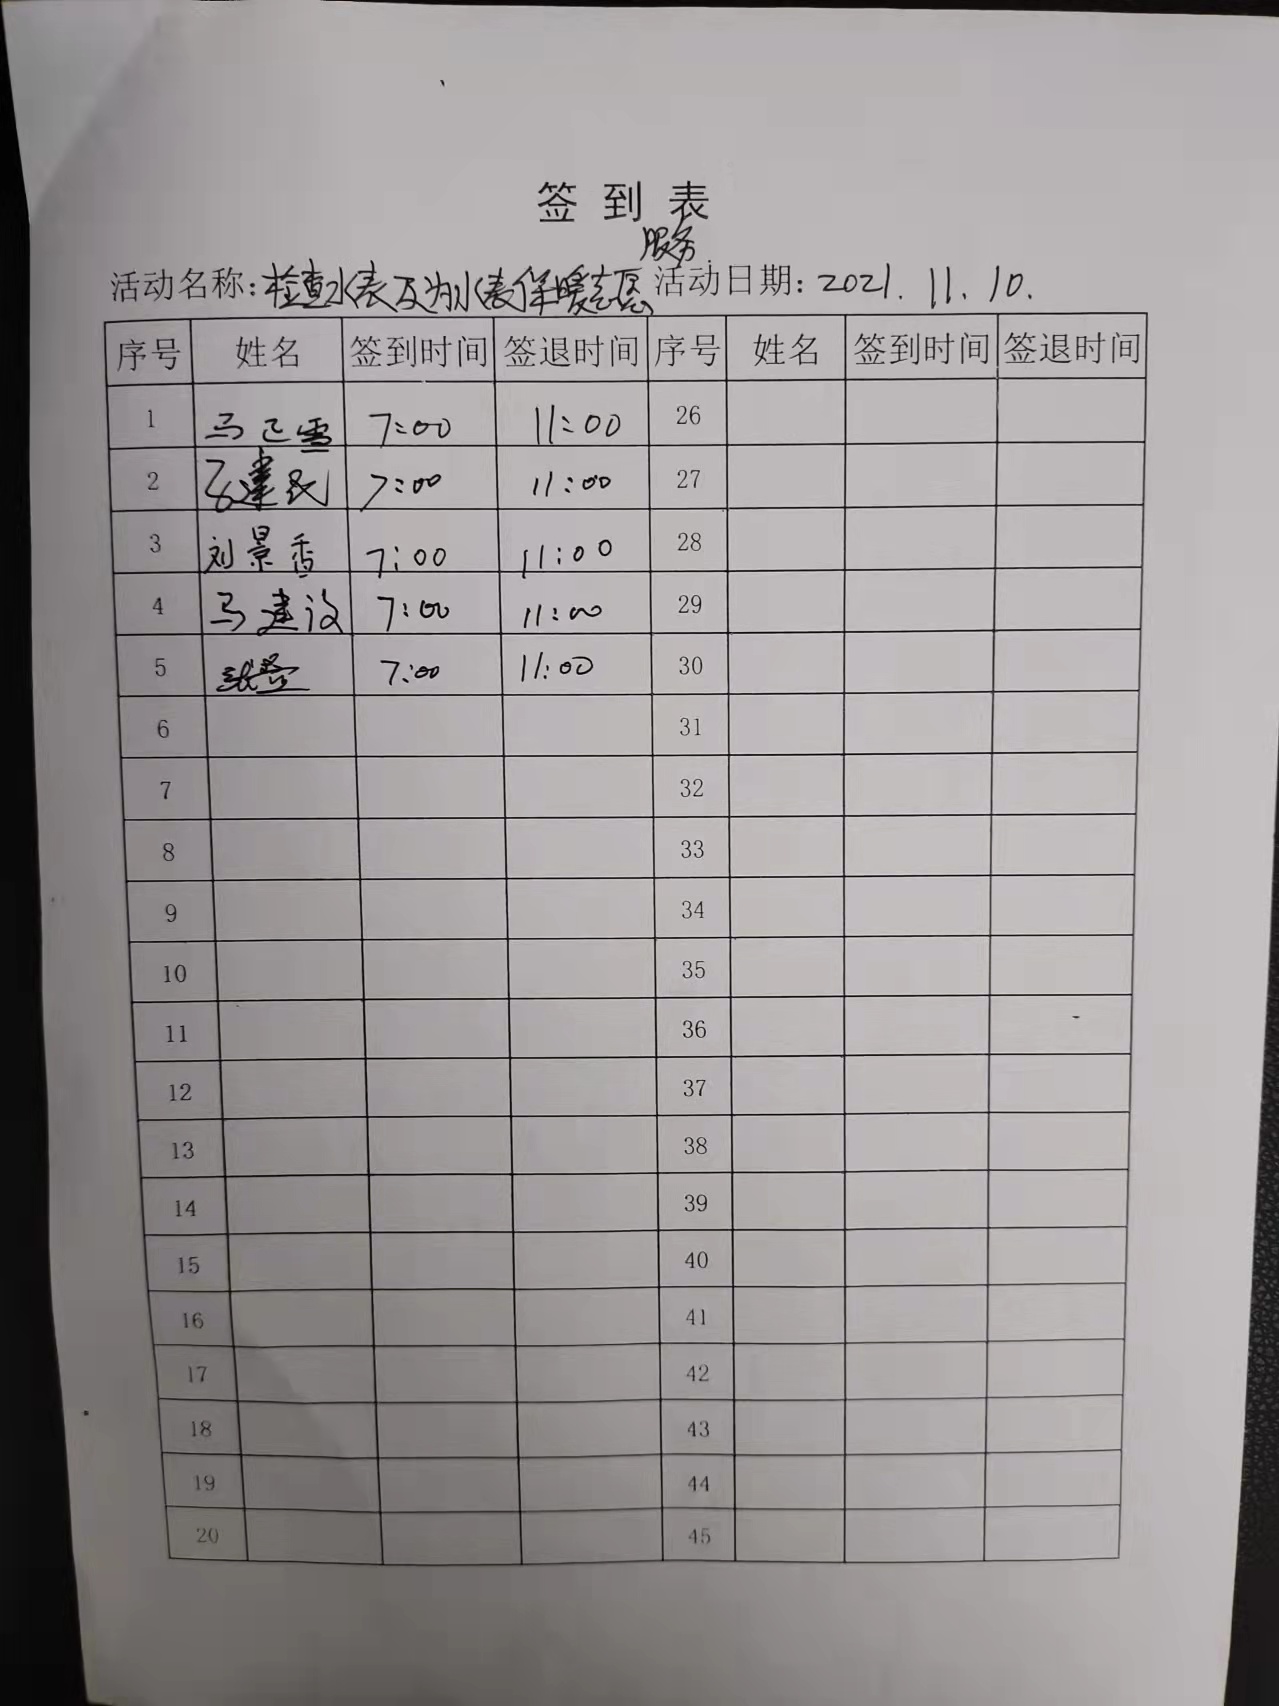 签到表
服务
活动名称:检查水表及为水表保暖志愿 活动日期:2021.11.10.
序号 姓名 签到时间 签退时间 序号 姓名 签到时间 签退时间
1 马 7:00 11:00 26
2 建民 7:00 11:00 27
3 刘景香 7:00 11:00 28
4 马建设 7:00 11:00 29
5 7:00 11:00 30
6 31
7 32
8 33
9 34
10 35
11 36
12 37
13 38
14 39
15 40
16 41
17 42
18 43
19 44
20 45